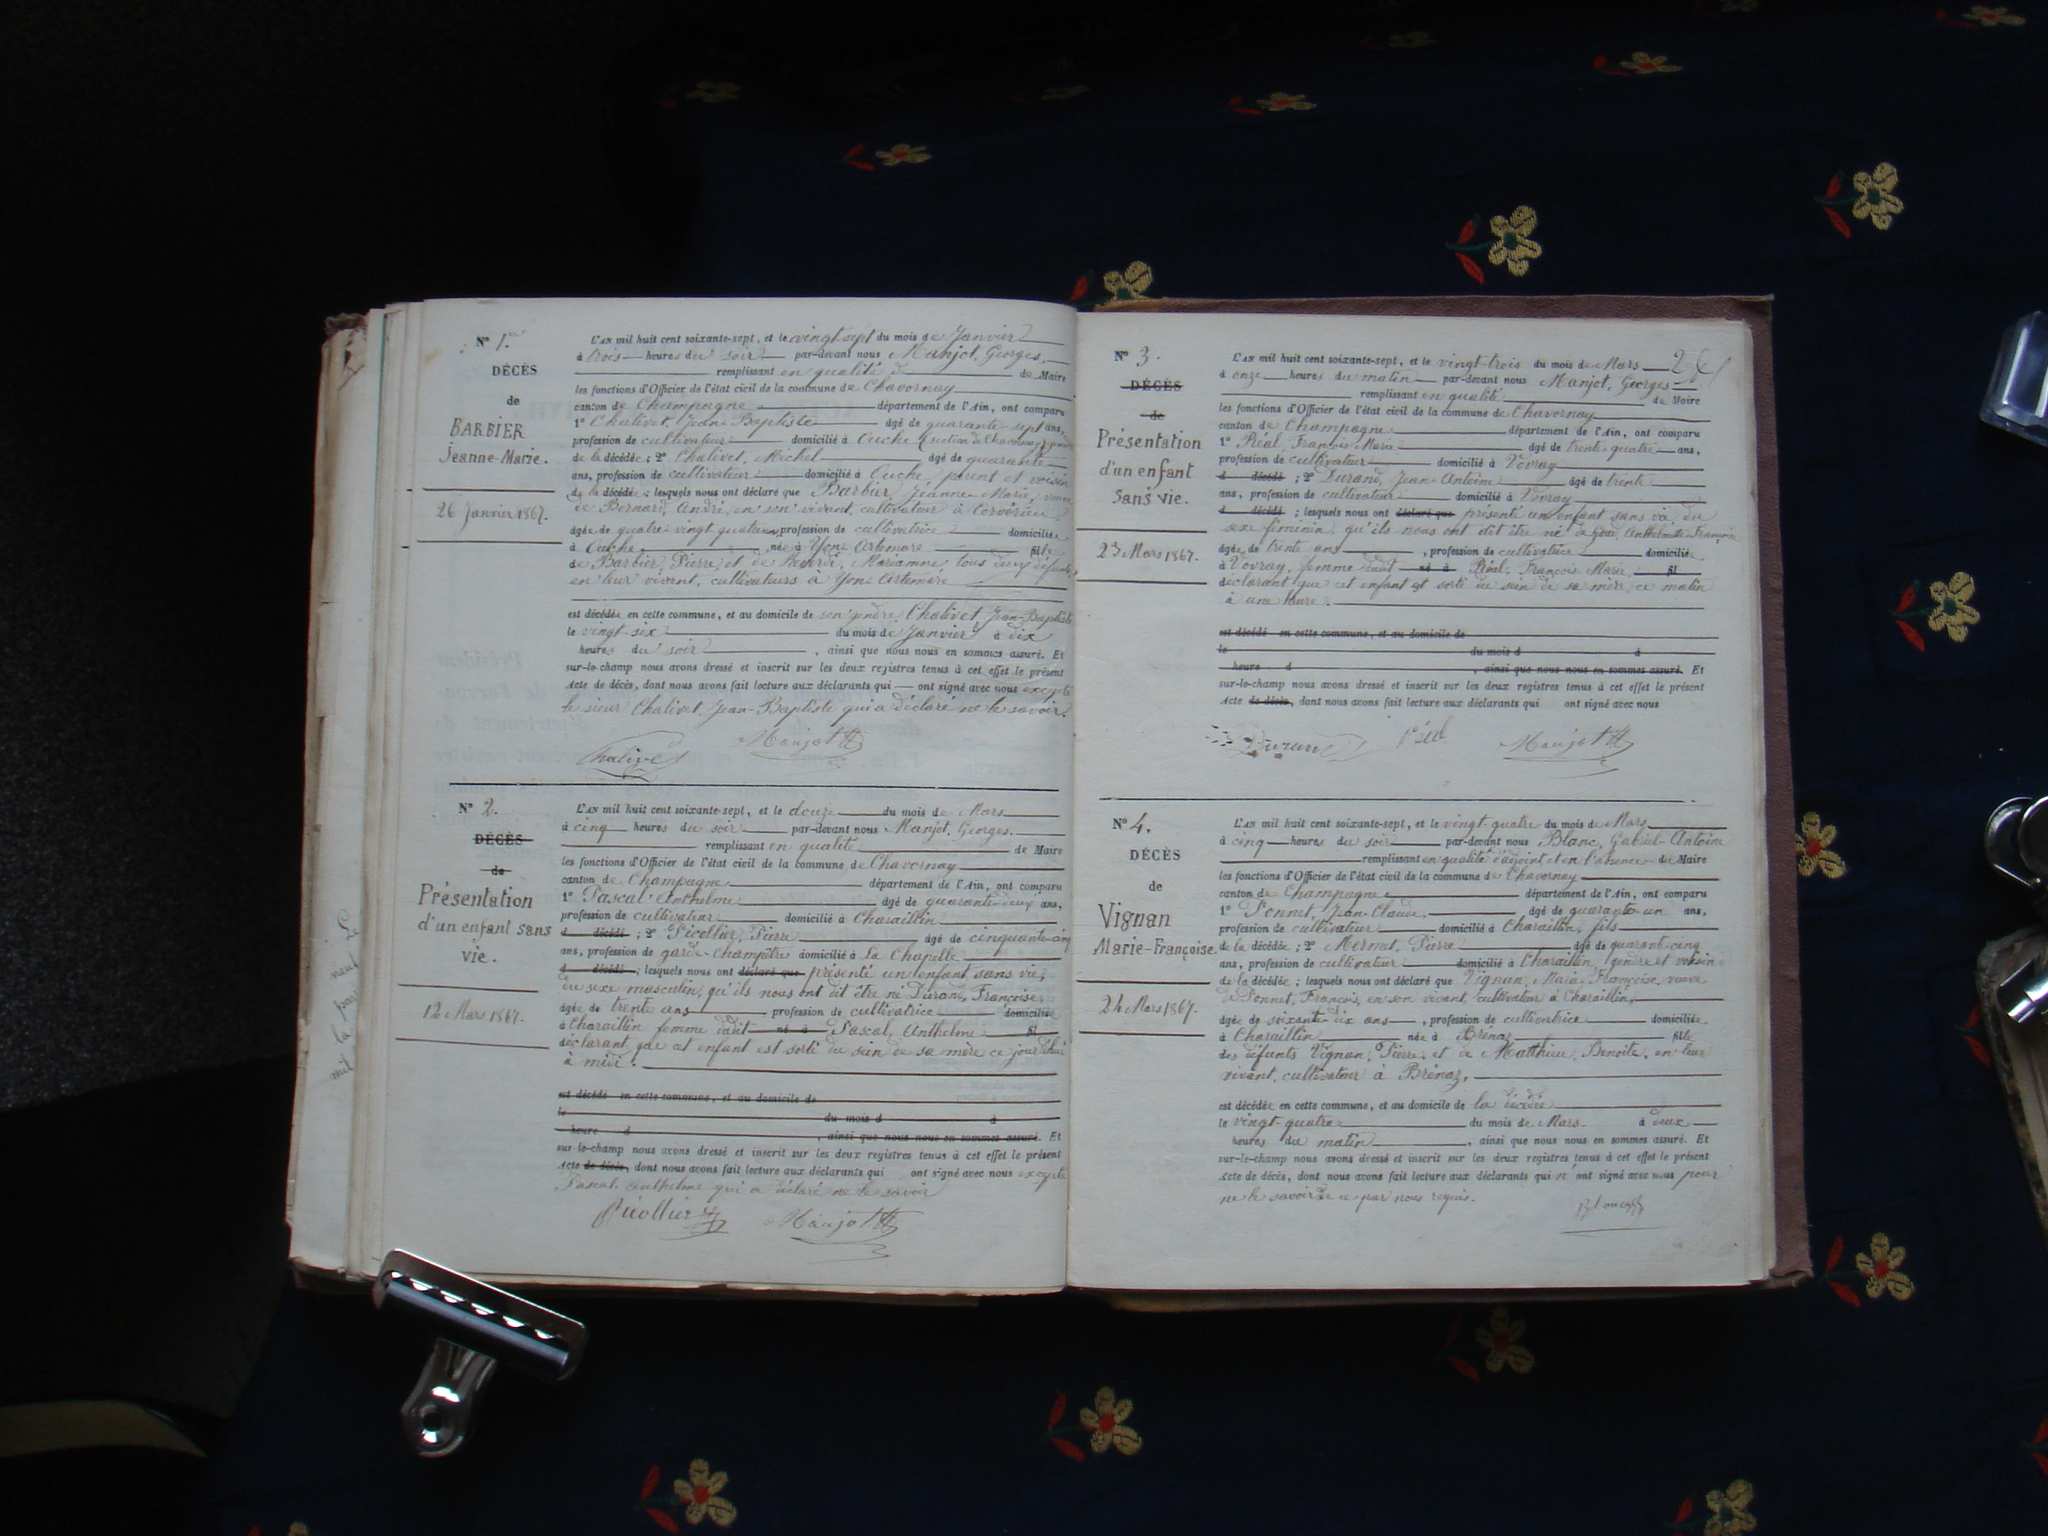 N° 1.er
DÉCÈS
de
BARBIER
Jeanne-Marie.
26 Janvier 1867.
L'AN mil huit cent soixante-sept, et le vingt sept du mois de Janvier
à trois heures du soir par-devant nous Manjot, Georges,
remplissant en qualité de Maire
les fonctions d'Officier de l'état civil de la commune de Chavornay
canton de Champagne département de l'Ain, ont comparu
1° Chalivet, Jean-Baptiste âgé de quarante-sept ans,
profession de cultivateur domicilié à Ouche (section de Chavornay)
de la décédée ; 2° Chalivet, Michel âgé de quarante
ans, profession de cultivateur domicilié à Ouche, parent et voisin
de la décédée ; lesquels nous ont déclaré que Barbier, Jeanne-Marie, veuve
de Bernard, André, en son vivant, cultivateur à
âgée de quatre-vingt-quatre ans, profession de cultivatrice domiciliée
à Ouche, née à Yon Artemare fille
de Barbier, Pierre et de Marianne, tous deux défunts,
en leur vivant, cultivateurs à Yon Artemare
est décédée en cette commune, et au domicile de son gendre Chalivet, Jean-Baptiste
le vingt-six du mois de Janvier à dix
heures du soir, ainsi que nous nous en sommes assuré. Et
sur-le-champ nous avons dressé et inscrit sur les deux registres tenus à cet effet le présent
Acte de décès, dont nous avons fait lecture aux déclarants qui ont signé avec nous excepté
le sieur Chalivet, Jean-Baptiste qui a déclaré ne le savoir.
Chalivet Manjot
N° 2.
DÉCÈS
de
Présentation
d'un enfant sans
vie.
12 Mars 1867.
L'AN mil huit cent soixante-sept, et le douze du mois de Mars
à cinq heures du soir par-devant nous Manjot, Georges.
remplissant en qualité de Maire
les fonctions d'Officier de l'état civil de la commune de Chavornay
canton de Champagne département de l'Ain, ont comparu
1° Pascal Anthelme âgé de quarante-deux ans,
profession de cultivateur domicilié à Charaillin
d décédé ; 2° Picollier, Pierre âgé de cinquante-cinq
ans, profession de garde-champêtre domicilié à La Chapelle
d décédé ; lesquels nous ont déclaré que présenté un enfant sans vie,
du sexe masculin, qu'ils nous ont dit être né Durand, Françoise
âgée de trente ans profession de cultivatrice domiciliée
à Charaillin femme dudit né à Pascal, Anthelme fil
déclarant que cet enfant est sorti du sein de sa mère ce jourd'hui
à midi.
est décédé en cette commune, et au domicile de
le du mois d à
heure d , ainsi que nous nous en sommes assuré. Et
sur-le-champ nous avons dressé et inscrit sur les deux registres tenus à cet effet le présent
Acte de décès, dont nous avons fait lecture aux déclarants qui ont signé avec nous excepté
Pascal Anthelme qui a déclaré ne le savoir
Picollier Manjot
N° 3.
DÉCÈS
de
Présentation
d'un enfant
sans vie.
23 Mars 1867.
L'AN mil huit cent soixante-sept, et le vingt-trois du mois de Mars 2
à onze heures du matin par-devant nous Manjot, Georges
remplissant en qualité de Maire
les fonctions d'Officier de l'état civil de la commune de Chavornay
canton de Champagne département de l'Ain, ont comparu
1° Réal, François-Marie âgé de trente-quatre ans,
profession de cultivateur domicilié à Vovray
d décédé ; 2° Durand, Jean-Antoine âgé de trente
ans, profession de cultivateur domicilié à Vovray
d décédé ; lesquels nous ont déclaré que présenté un enfant sans vie, du
sexe féminin, qu'ils nous ont dit être né à Anthelmette Françoise
âgée de trente ans, profession de cultivatrice domiciliée
à Vovray, femme dudit né à Réal, François-Marie, fil
déclarant que cet enfant est sorti du sein de sa mère, ce matin
à une heure.
est décédé en cette commune, et au domicile de
le du mois d à
heure d , ainsi que nous nous en sommes assuré. Et
sur-le-champ nous avons dressé et inscrit sur les deux registres tenus à cet effet le présent
Acte de décès, dont nous avons fait lecture aux déclarants qui ont signé avec nous
Durand Réal Manjot
N° 4.
DÉCÈS
de
Vignan
Marie-Françoise.
24 Mars 1867.
L'AN mil huit cent soixante-sept, et le vingt-quatre du mois de Mars
à cinq heures du soir par-devant nous Blanc, Gabriel-Antoine
remplissant en qualité d'adjoint et en l'absence de Maire
les fonctions d'Officier de l'état civil de la commune de Chavornay
canton de Champagne département de l'Ain, ont comparu
1° Sonnet, Jean-Claude, âgé de quarante-un ans,
profession de cultivateur domicilié à Charaillin, fils
de la décédée ; 2° Mermet, Pierre âgé de quarante-cinq
ans, profession de cultivateur domicilié à Charaillin, gendre et voisin
de la décédée ; lesquels nous ont déclaré que Vignan, Marie-Françoise, veuve
de Sonnet, François, en son vivant, cultivateur à Charaillin,
âgée de soixante-dix ans, profession de cultivatrice domiciliée
à Charaillin née à Brénaz fille
des défunts Vignan, Pierre, et de Matthieu, Benoîte, en leur
vivant, cultivateur à Brénaz,
est décédée en cette commune, et au domicile de la décédée
le vingt-quatre du mois de Mars à deux
heures du matin, ainsi que nous nous en sommes assuré. Et
sur-le-champ nous avons dressé et inscrit sur les deux registres tenus à cet effet le présent
Acte de décès, dont nous avons fait lecture aux déclarants qui n'ont signé avec nous pour
ne le savoir de ce par nous requis.
Blanc